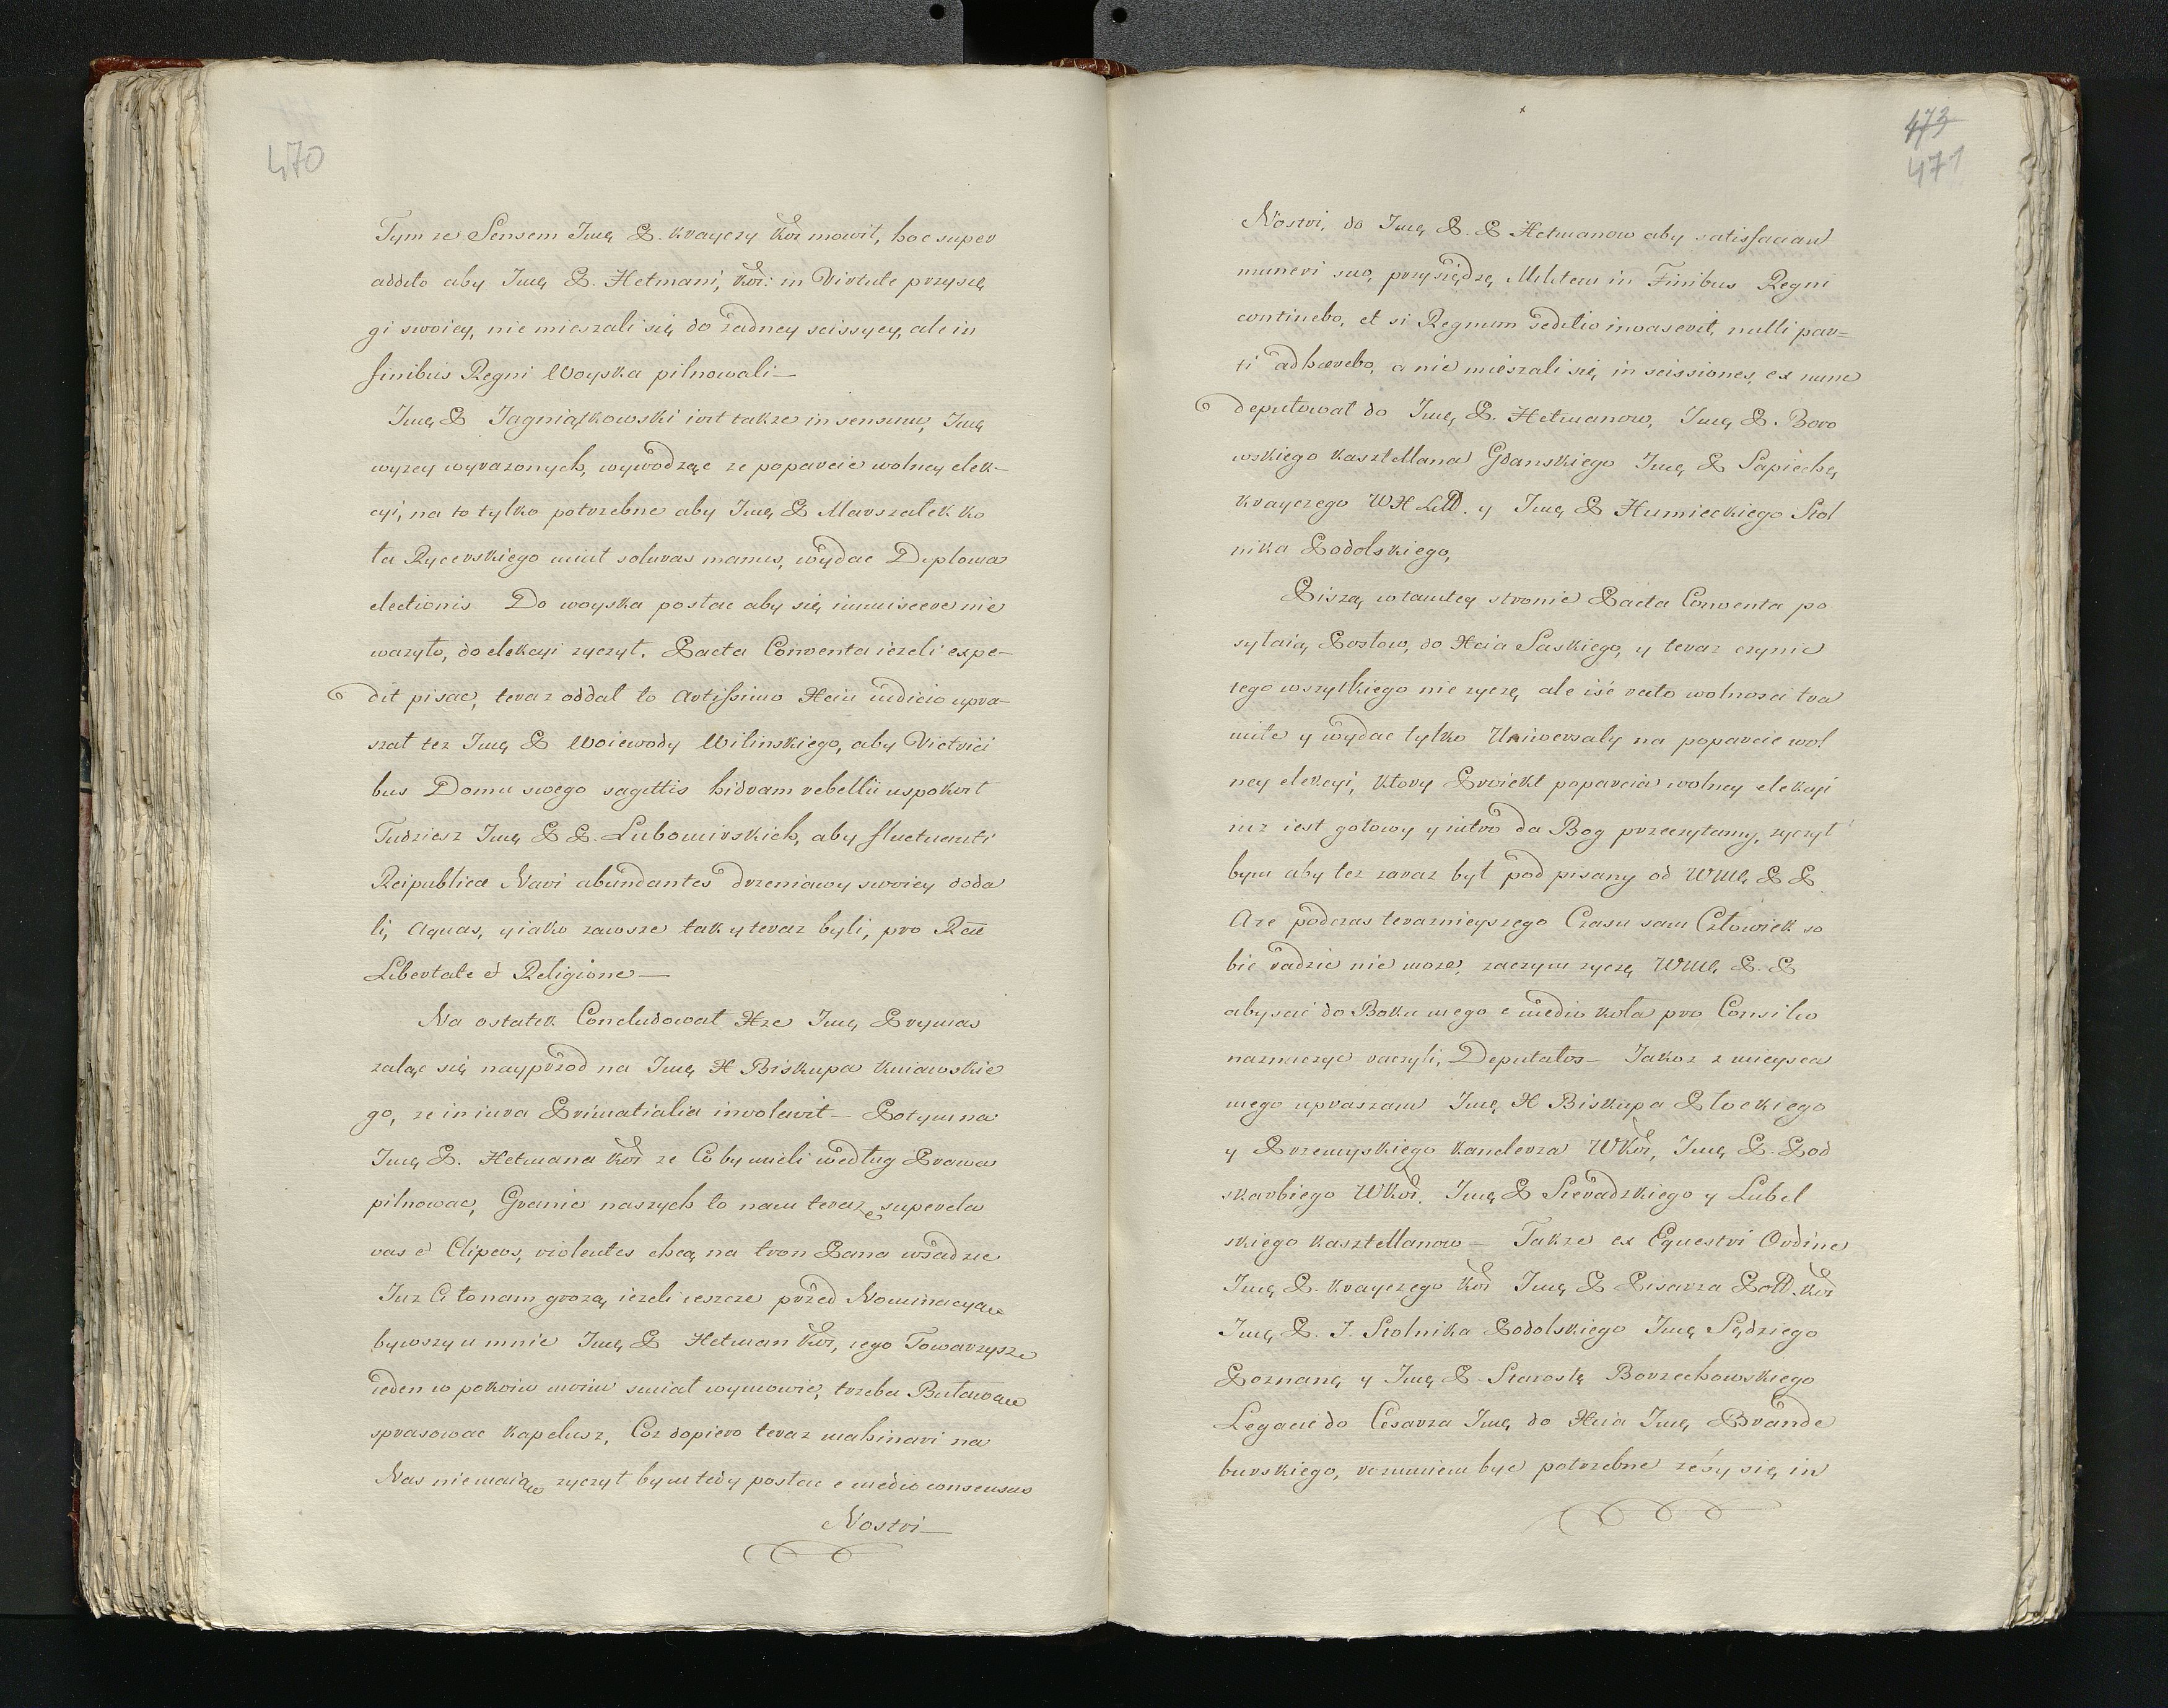 470
Tym ze Sensem Imę P. krayczy kor mowił, hoc super
addito aby Imę P. Hetmani, kor: in Virtute przysię
gi swoiey, nie mieszali się do żadney scissyey, ale in
finibus Regni Woyska pilnowali —
Imę P Jagniątkowski ivit takze in sensum, Imę
wyzey wyrazonych, wywodząc ze poparcie wolney elek-
cyi, na to tylko potrzebne aby Imę P Marszałek ko
ła Rycerskiego miał solutas manus, wydac Deploma
electionis Do woyska posłac aby się immiscere nie
wazyło, do elekcyi zyczył. Pacta Conventa iezeli expe-
dit pisac, teraz oddał to Artissimo Xcia iudicio upra-
szał tez Imę P Woiewody Wilinskiego, aby Victrici
bus Domu swego sagittis hidram rebellii uspokoił
Tudziesz Imę P P. Lubomirskich, aby fluctuanti
Reipublicæ Navi abundantes drzeniawy swoiey doda
li, Aquas, y iako zawsze tak y teraz byli, pro Rae
Libertate et Religione —
Na ostatek Concludował Xze Imę Prymas
zaląc się nayprzod na Imę X Biskupa Kuiawskie
go, ze in iura Primatialia involavit — Potym na
Imę P. Hetmana kor ze Co by mieli według Prawa
pilnowac, Granic naszych to nam teraz supercela
vas et Clipeos, violentes chcą na tron Pana wsadzic
Iuz Ci to nam grozą iezeli ieszcze przed Nominacyą
bywszy u mnie Imę P Hetman kor, iego Towarzysze
ieden w pokoiu moim smiał wymowic, trzeba Buławą
sprasowac kapelusz, Coz dopiero teraz mahinari na
Nas nie maią zyczył bym tedy posłac e medio consensus
Nostri —
473
471
Nostri, do Imę P. P Hetmanow aby satisfaciant
muneri suo, przysiędze Militem in Finibus Regni
continebo, et si Regnum seditio invaserit, nulli par-
ti adhærebo, a nie mieszali się in scissiones, ex nunc
deputował do Imę P. Hetmanow, Imę P. Boro
wskiego kasztellana Gdanskiego Imę P Sapiehę
krayczego WXLitt. y Imę P Humieckiego Stol
nika Podolskiego,
Piszą w tamtey stronie Pacta Conventa po
syłaią Posłow, do Xcia Saskiego, y teraz czynic
tego wszytkiego nie zyczę ale iść rato wolnosci tra
mite y wydac tylko Uniwersały na poparcie wol
ney elekcyi, ktory Proiekt poparcia wolney elekcyi
iuz iest gotowy y iutro da Bog przeczytamy, zyczył
bym aby tez zaraz był podpisany od WMę P P.
A ze podczas teraznieyszego Czasu sam Człowiek so
bie radzic nie moze, zaczym zyczę WMę P. P
abyscie do Boku mego e medio koła pro Consilio
naznaczyc raczyli, Deputatos — Jakoz z mieysca
mego upraszam Imę X Biskupa Płockiego
y Przemyskiego kanclerza WKor, Imę P. Pod
skarbiego WKor. Imę P Sieradzkiego y Lubel
skiego kasztellanow — Takze ex Equestri Ordine
Imę P. krayczego kor Imę P Pisarza Poll. kor
Imę P. I. Stolnika Podolskiego Imę Sędziego
Poznanę y Imę P. Starostę Borzechowskiego
Legacie do Cesarza Imę do Xcia Imę Brande
burskiego, rozumiem byc potrzebne zeby się in